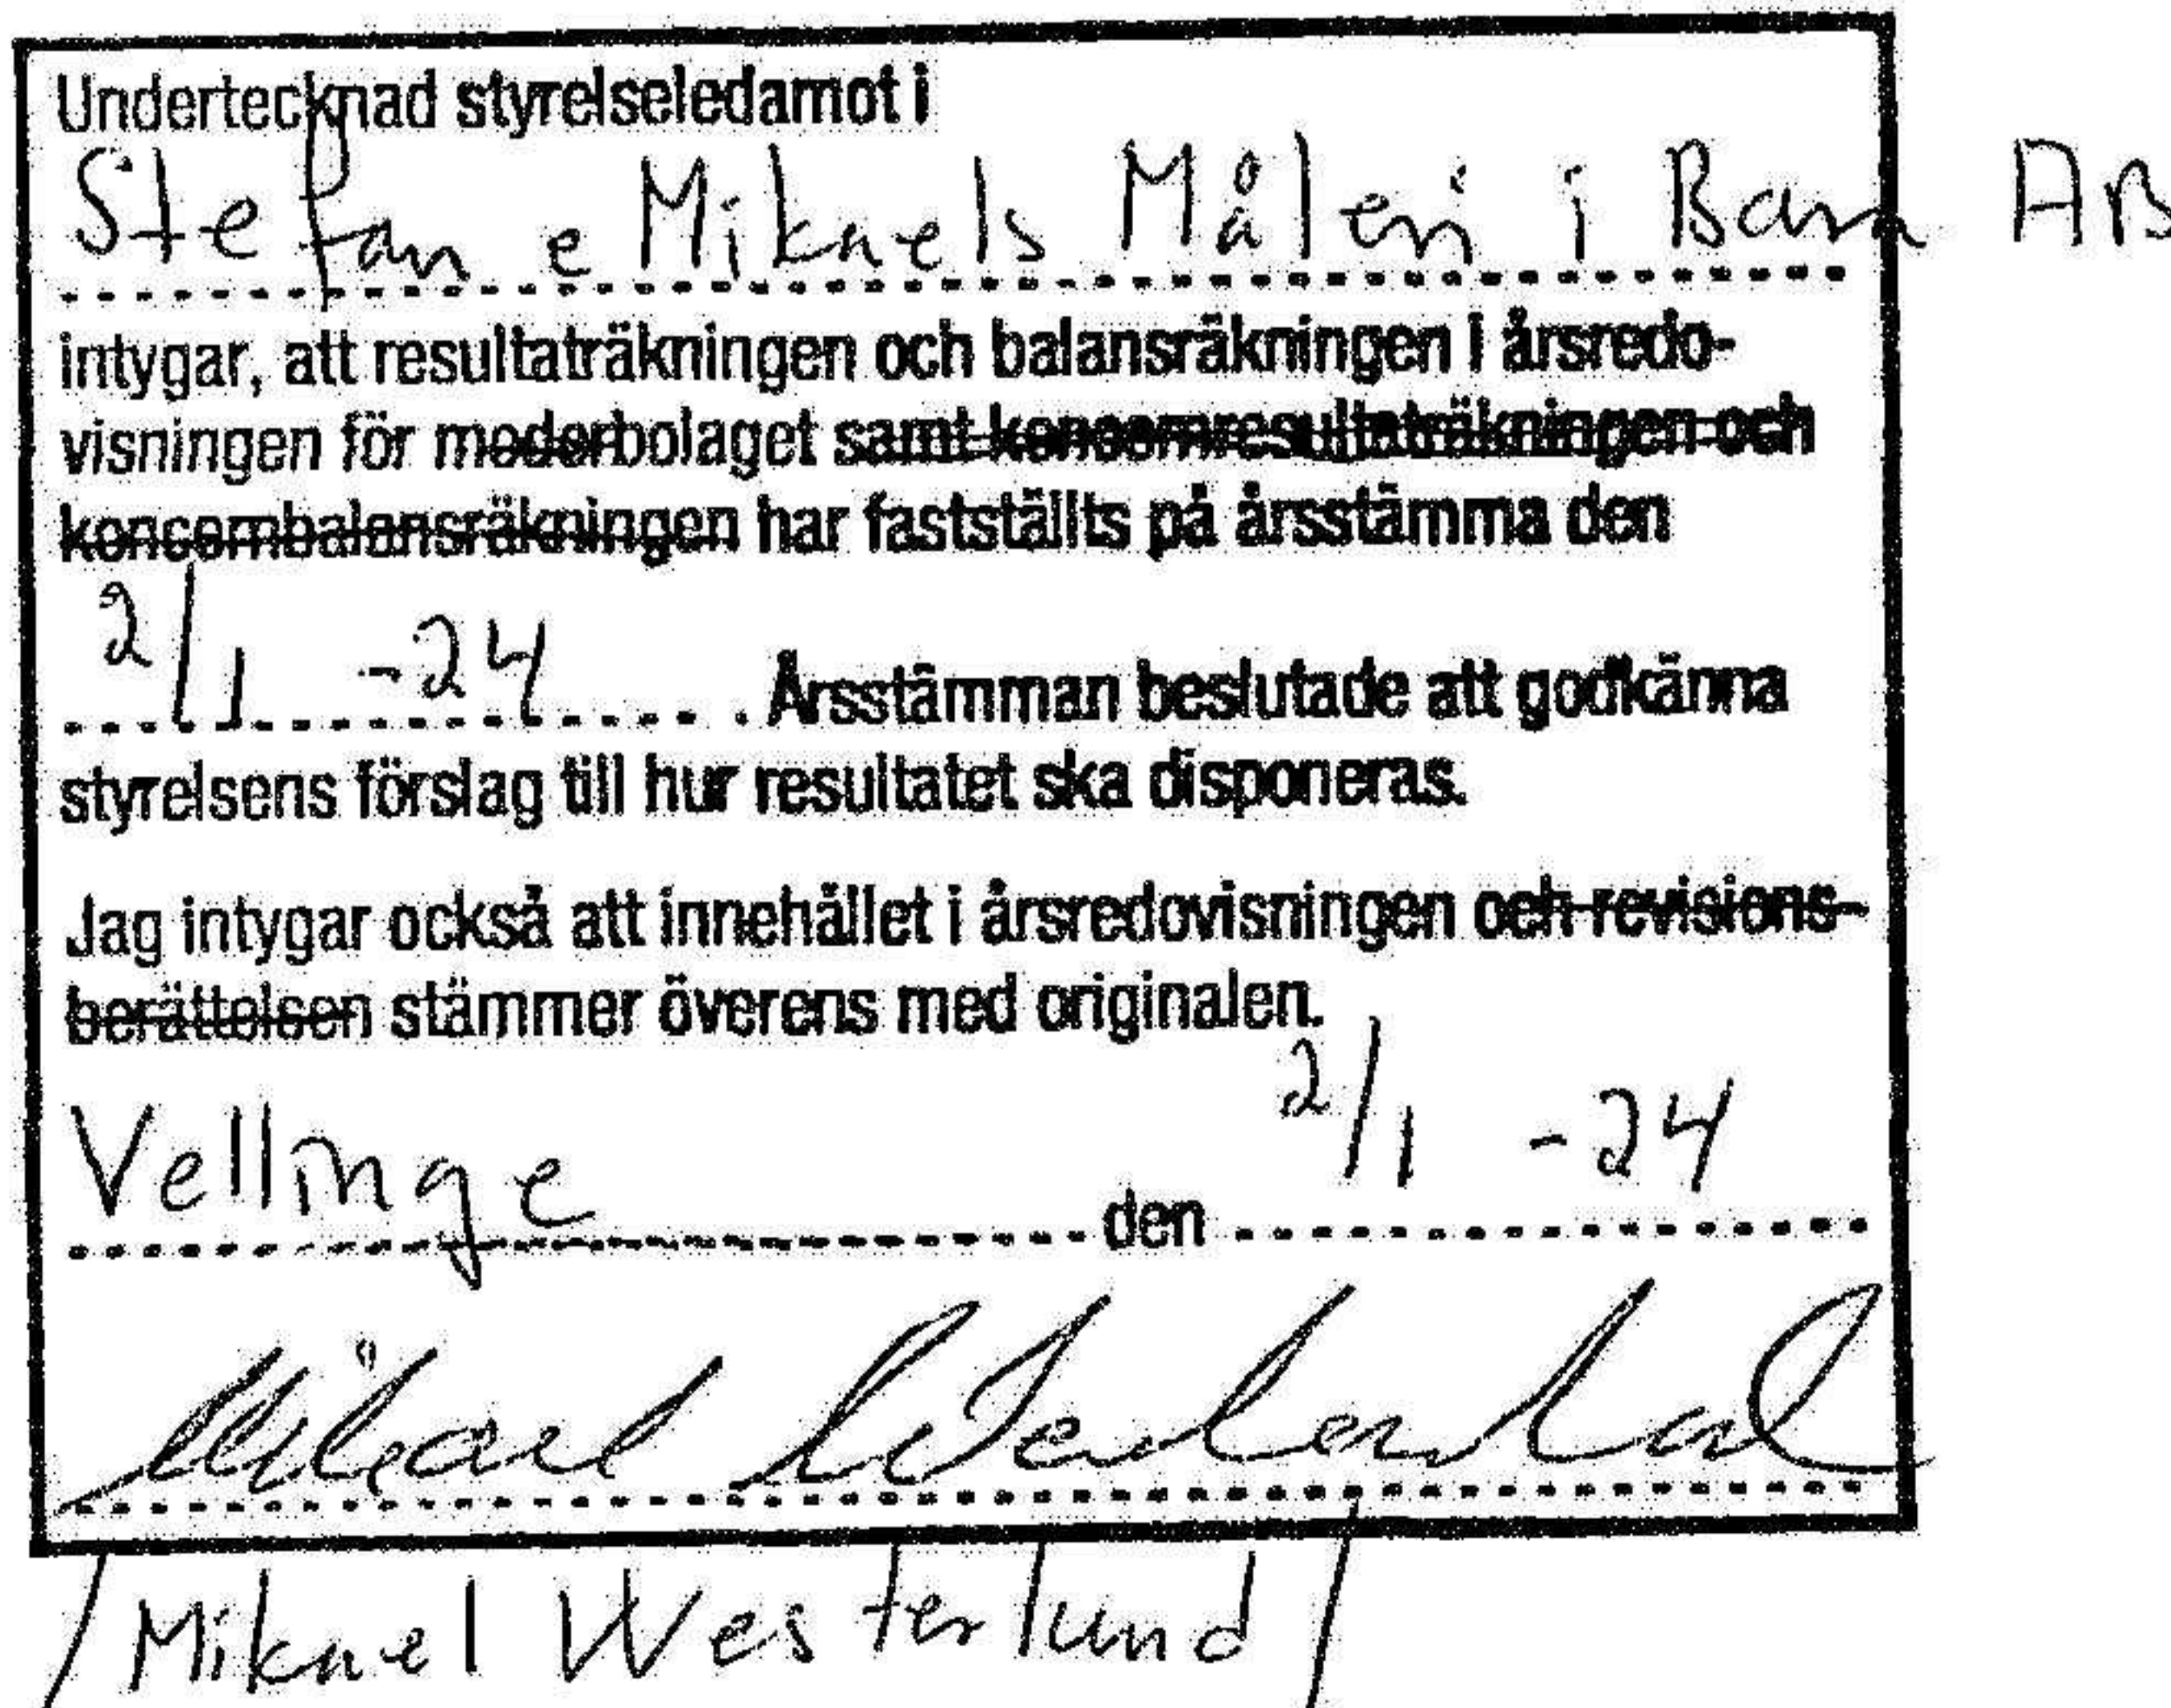 Undertecknad styrelseledamot i
Stefan e Mikaels Måleri i Bara AB
intygar, att resultaträkningen och balansräkningen i årsredo-
visningen för moderbolaget samt koncernresultaträkningen och
koncernbalansräkningen har fastställts på årsstämma den
2/1 -24 . Årsstämman beslutade att godkänna
styrelsens förslag till hur resultatet ska disponeras.
Jag intygar också att innehållet i årsredovisningen och revisions-
berättelsen stämmer överens med originalen.
Vellinge den 2/1 -24
Mikael Westerlund
/Mikael Westerlund/